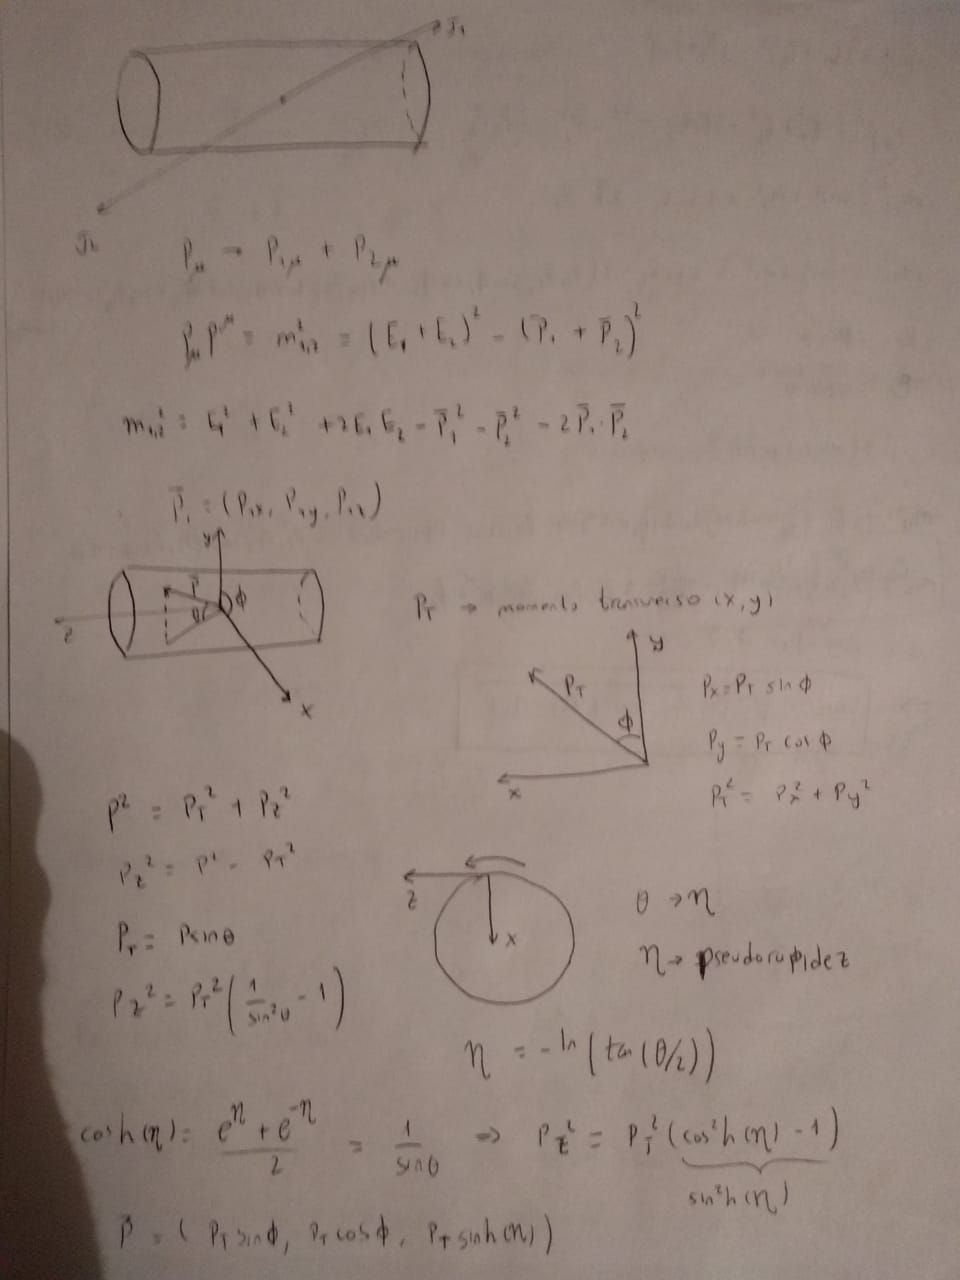 J₁
J₂
Pμ → P₁μ + P₂μ
PμP^μ = m²₁,₂ = (E₁ + E₂)² - (P̄₁ + P̄₂)²
m₁,₂² = E₁² + E₂² + 2E₁E₂ - P̄₁² - P̄₂² - 2P̄₁·P̄₂
P̄₁ = (P₁x, P₁y, P₁z)
y
P̄
θ
ϕ
z
x
P_T → momento tranverso (x,y)
y
P_T
ϕ
x
Px = P_T sin ϕ
Py = P_T cos ϕ
P_T² = Px² + Py²
P² = P_T² + Pz²
Pz² = P² - P_T²
P_T = P sin θ
Pz² = P_T² (1/sin²θ - 1)
z
x
θ → η
η → pseudorapidez
η = -ln(tan(θ/2))
cosh(η) = (e^η + e^-η)/2 = 1/sin θ ⇒ Pz² = P_T² (cos²h(η) - 1)
sin²h(η)
P̄ = (P_T sin ϕ, P_T cos ϕ, P_T sinh(η))